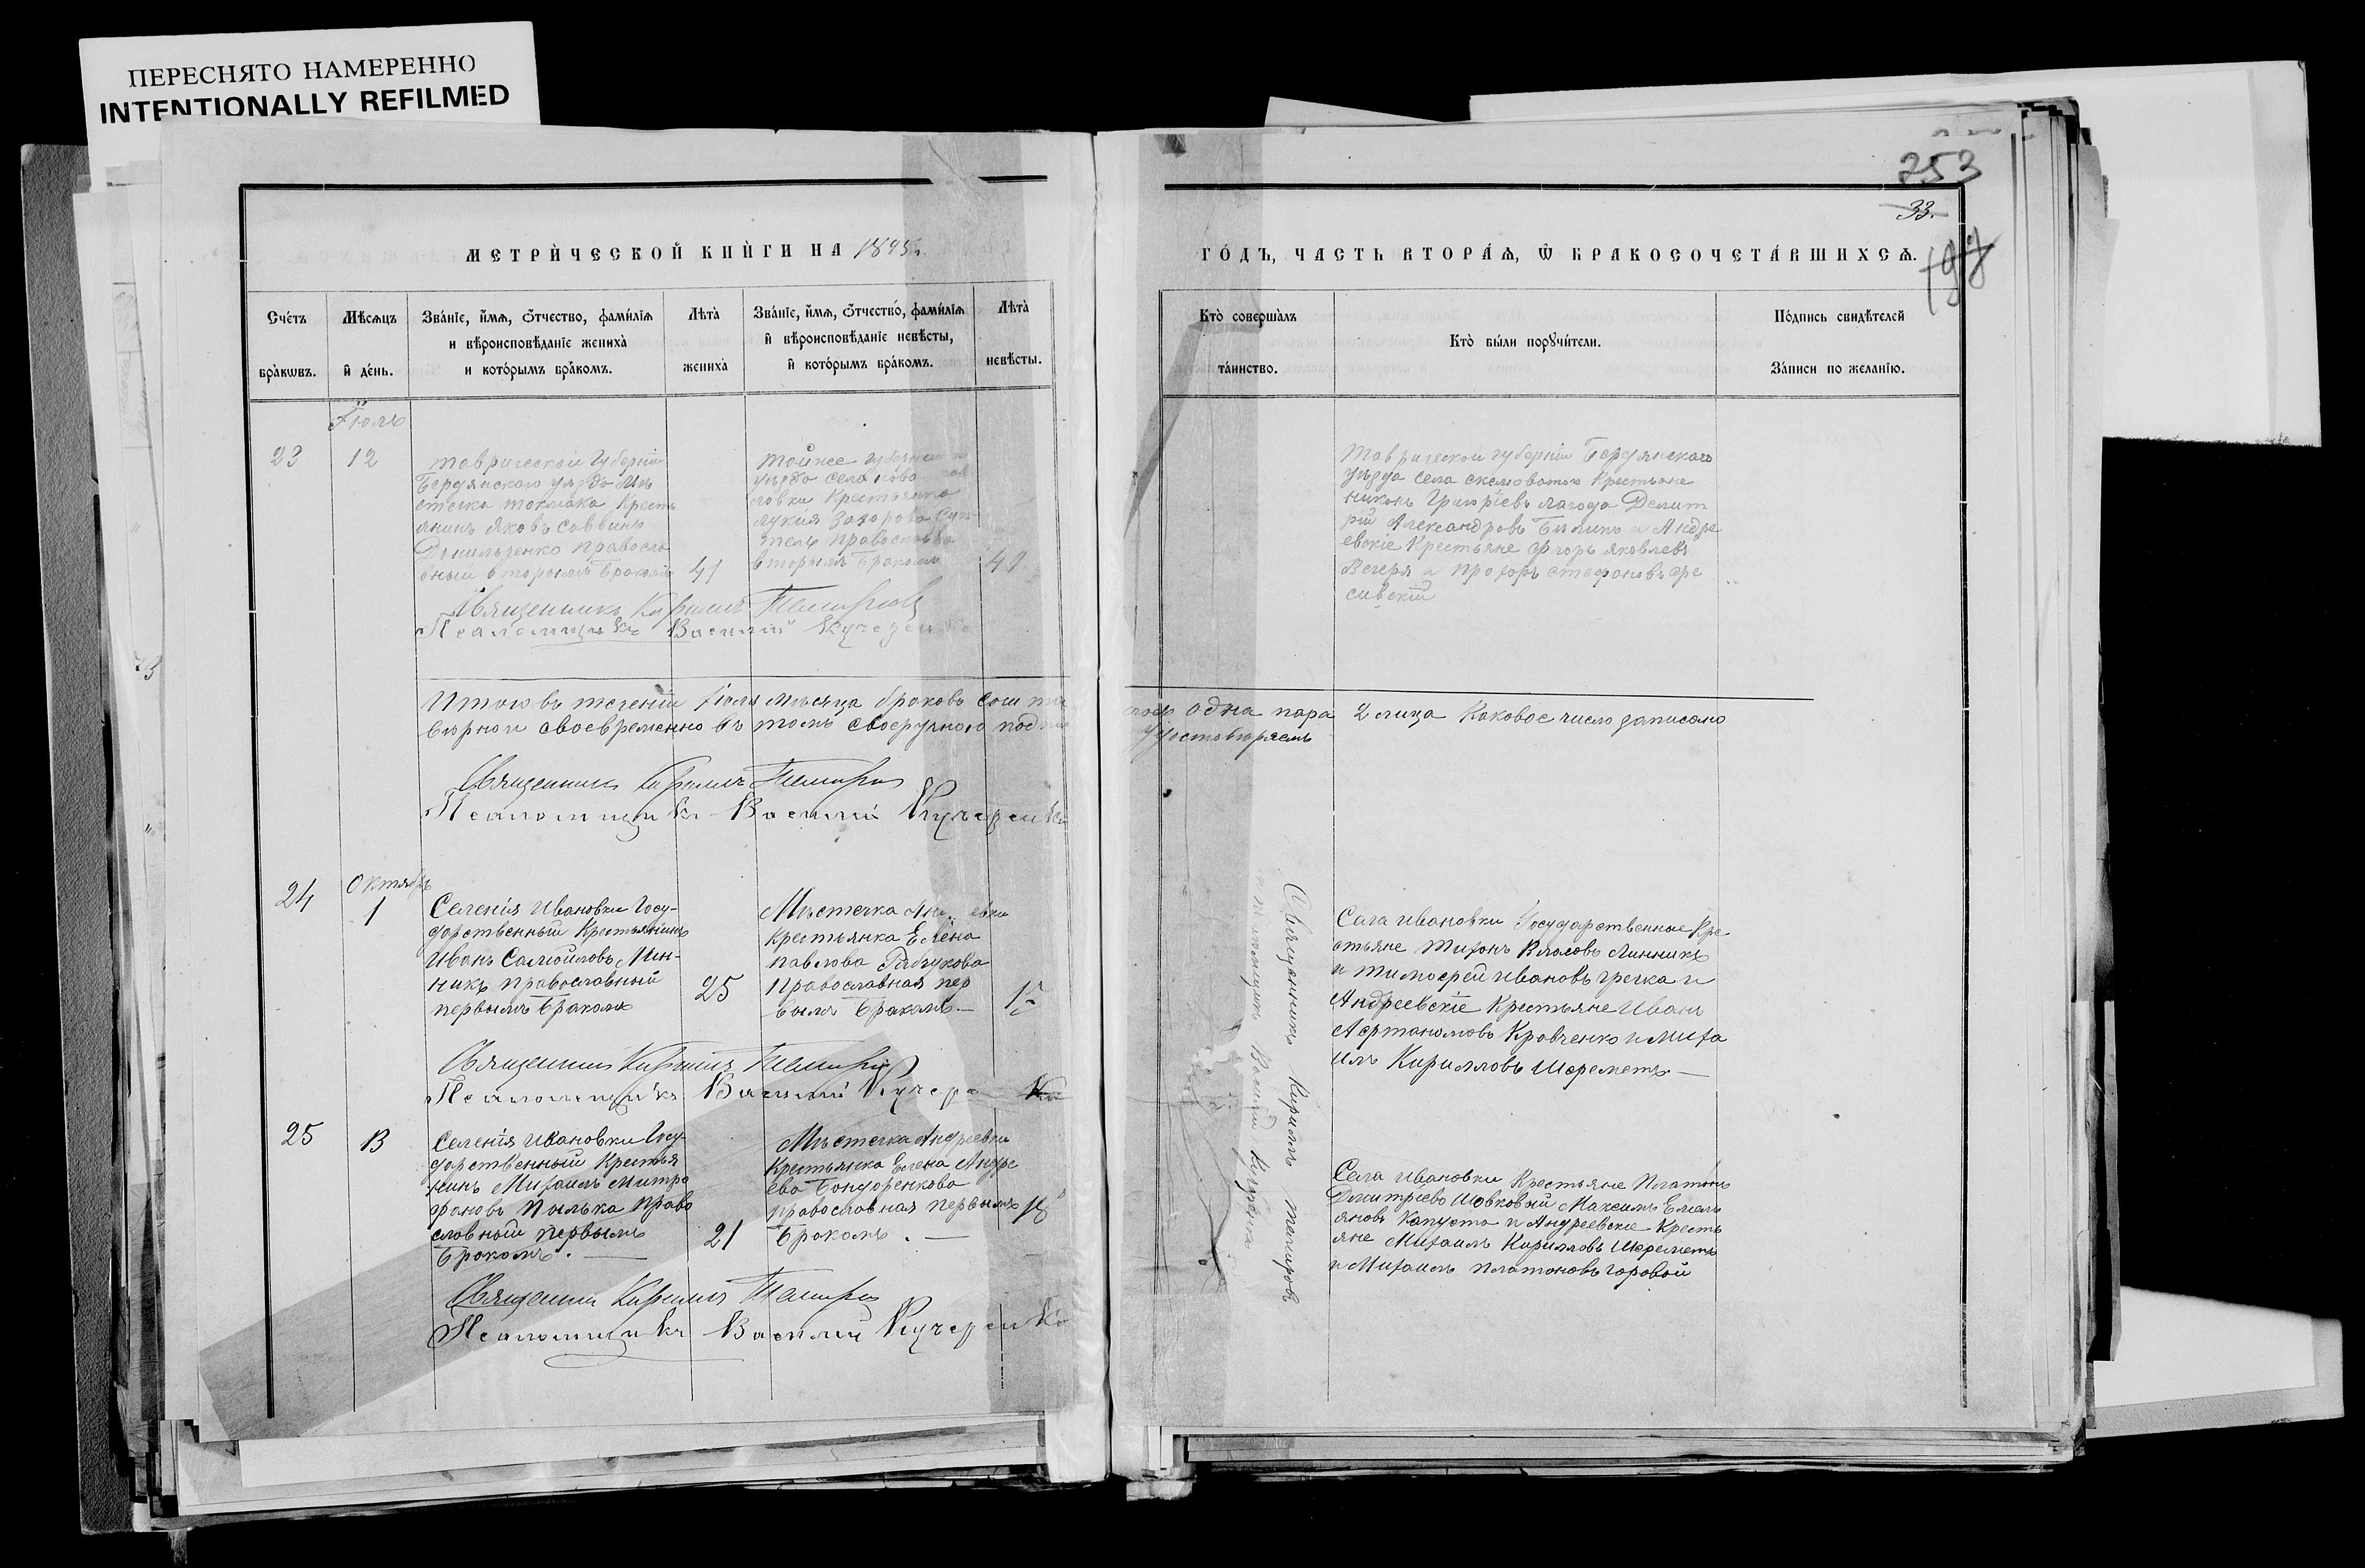 ПЕРЕСНЯТО НАМЕРЕННО
INTENTIONALLY REFILMED
253
33.
МЕТРИ́ЧЕСКОЙ КНИ́ГИ НА 1895 г.
ГО́ДЪ, ЧАСТЬ ВТОРА́Я, Ѿ БРАКОСОЧЕТА́ВШИХСѦ.
Сче́тъ бра́кѡвъ.
Мѣ́сѧцъ и҆ де́нь.
Зва́нїе, и҆́мѧ, ѻ҆́тчество, фами́лїѧ
и вѣроисповѣ́данїе жениха̀
и кото́рымъ бра́комъ.
Лѣта̀ жениха̀
Зва́нїе, и҆́мѧ, ѻ҆́тчество, фами́лїѧ
и҆ вѣроисповѣ́данїе невѣ́сты,
и҆ кото́рымъ бра́комъ.
Лѣта̀ невѣ́сты.
Кто̀ соверша́лъ та́инство.
Кто̀ бы́ли порꙋчи́тели.
По́дпись свидѣ́телей
За́писи по жела́нїю.
Іюль
23
12
Таврической губерніи
Бердянского уезда Мѣ
стечка Токмака Кресть
янинъ Яковъ Саввинъ
Данильченко правосла
вный вторымъ бракомъ
41
Тойже губерніи и
уезда села Ново
ловки Крестьянка
Лукія Захарова
православна
вторымъ бракомъ
Таврической губерніи Бердянского
уезда села Скеловатаго Крестьяне
Никонъ Григоріевъ Лагода Димит
рій Александровъ Билыкъ и Андре
евскіе Крестьяне Флоръ Яковлевъ
Вечеря и Прохоръ Стефановъ
сивскій
Священникъ Кириллъ
Псаломщикъ Василій Кучеренко
Итого въ теченіи Іюля мѣсяца браковъ
одна пара 2 лица Каковое число записано
вѣрно и своевременно въ томъ своеручного
удостовѣряемъ
Священникъ Кириллъ
Псаломщикъ Василій Кучеренко
24
Октябрь
1
Селенія Ивановки Госу-
дарственный Крестьянинъ
Иванъ Самойловъ Лин-
никъ православный
первымъ бракомъ
25
Мѣстечка
крестьянка Елена
Павлова Рябчукова
православная пер
вымъ бракомъ.—
Села Ивановки Государственные Кре
стьяне Тихонъ Власовъ Линникъ
и Тимофей Ивановъ Гречка и
Андреевскіе Крестьяне Иванъ
Артамоновъ Кравченко и Миха
илъ Кирилловъ Шереметъ—
Священникъ Кириллъ
Псаломщикъ Василій
25
Селенія Ивановки Госу-
дарственный Крестья
нинъ Михаилъ Митро
фановъ Пилька право
славный первымъ
бракомъ.—
21
Мѣстечка Андреевки
Крестьянка Елена Андре
ева Бондоренкова
православная первымъ
бракомъ.—
18
Села Ивановки Крестьяне Платонъ
Дмитріевъ Шовковый Максимъ Емель
яновъ Капуста и Андреевские Кресть
яне Михаилъ Кирилловъ Шереметъ
и Михаилъ Платоновъ Горовой
Священникъ Кириллъ
Псаломщикъ Василій Кучеренко
Священникъ Кириллъ
Псаломщикъ Василій Кучеренко